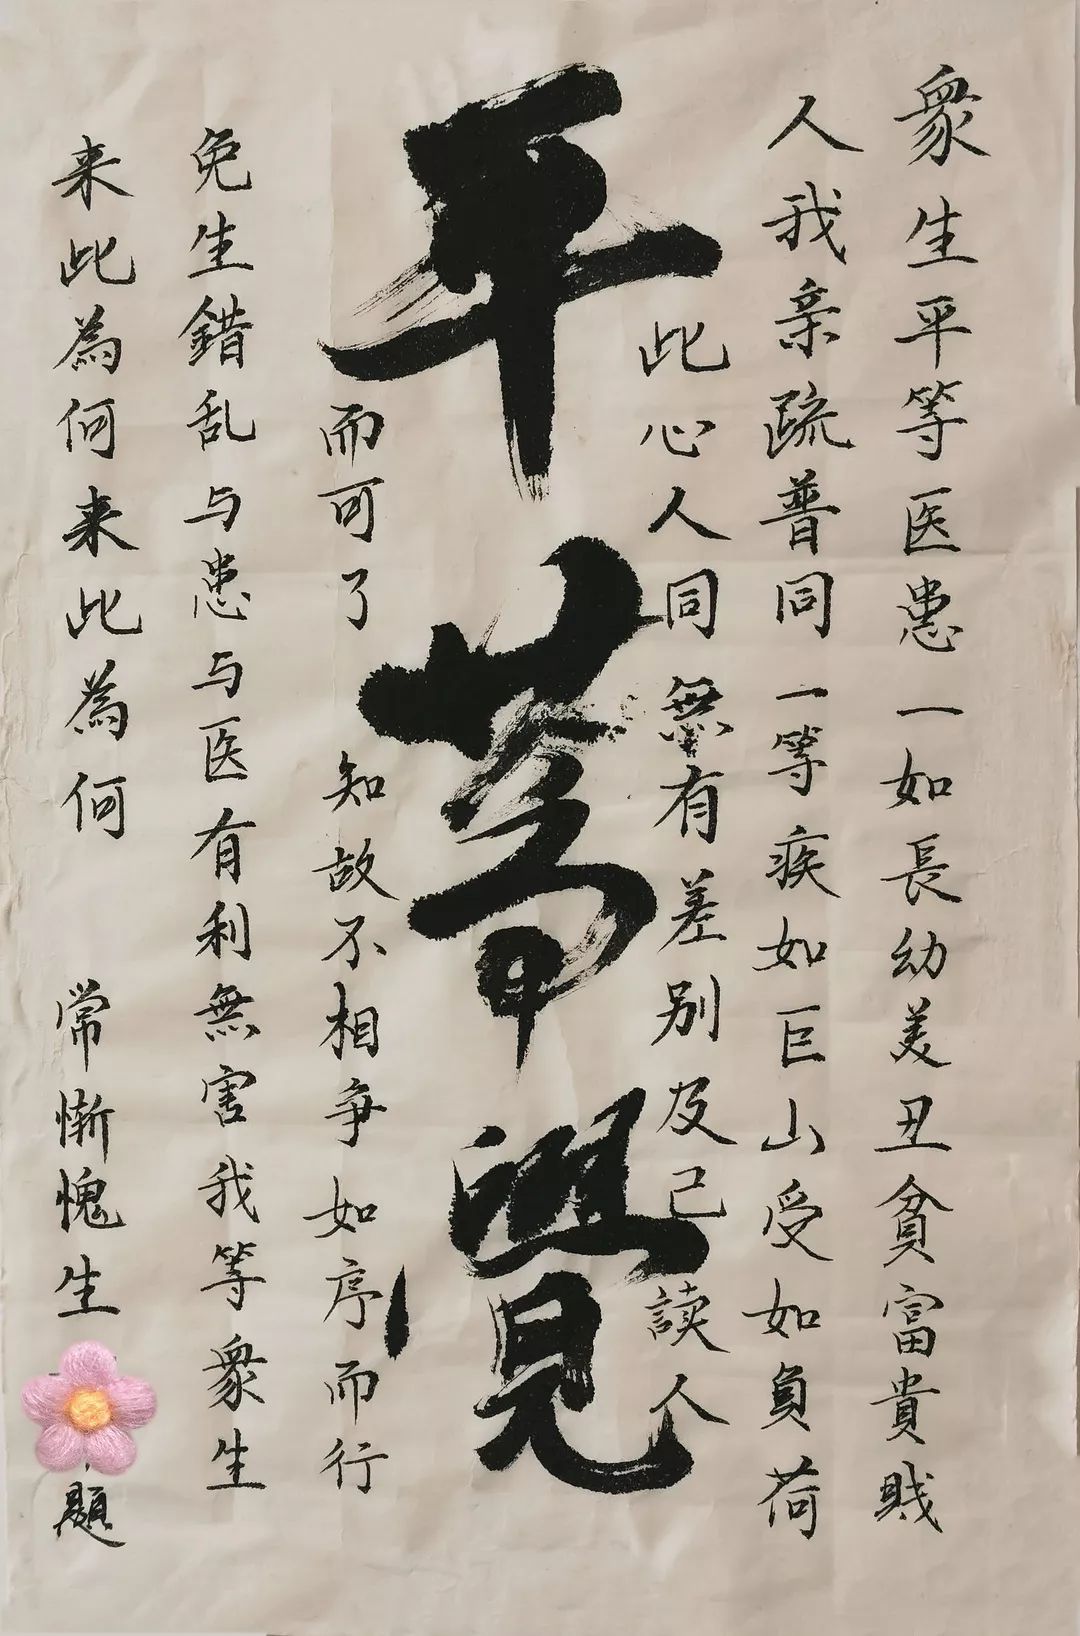 衆生平等医患一如長幼美丑貧富貴賎
人我亲疏普同一等疾如巨山受如負荷
此心人同無有差别及己讀人
平等覺
而可了知故不相争如序而行
免生錯乱与患与医有利無害我等衆生
来此為何来此為何 常慚愧生 題